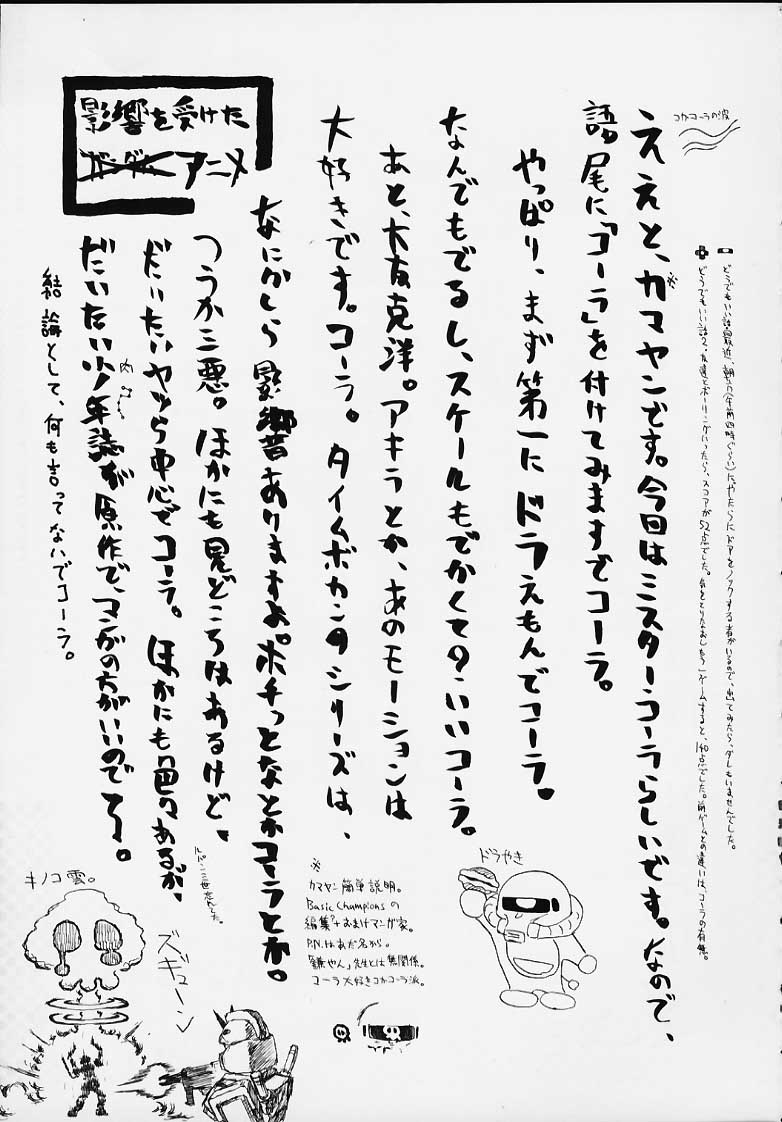 コカコーラの波
どうでもいい話。最近、朝方(午前四時ぐらい)にやたらにドアをノックする者がいるので、出てみたら、ダレもいませんでした。
どうでもいい話2。友達とボーリングいったら、スコアが52点でした。気をとりなおしもう1ゲームすると、140点でした。前ゲームとの違いは、コーラの有無。
ええと、カマヤンです。今回はミスターコーラらしいです。なので、
※
語尾に「コーラ」を付けてみますでコーラ。
やっぱり、まず第一にドラえもんでコーラ。
なんでもでるし、スケールもでかくての、いいコーラ。
あと、大友克洋。アキラとか、あのモーションは
大好きです。コーラ。タイムボカンのシリーズは、
なにかしら影響ありますよ。ポチっとなとかコーラとか。
つうか三悪。ほかにも見どころはあるけど。
だいたいヤツら中心でコーラ。ほかにも色々あるが、
ルパン三世忘れてた。
だいたい少年誌が原作で、マンガの方がいいのでコーラ。
結論として、何も言ってないでコーラ。
影響を受けた
ガンダム アニメ
※
カマヤン簡単説明。
Basic Championsの
編集?+おまけマンガ家。
P.N.はあだ名から。
「鎌やん」先生とは無関係。
コーラ大好きコカコーラ派。
ドラやき
キノコ雲。
ズギューン